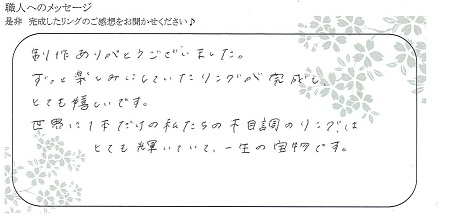 職人へのメッセージ
是非 完成したリングのご感想をお聞かせください♪
制作ありがとうございました。
ずっと楽しみにしていたリングが完成し、
とても嬉しいです。
世界に1本だけの私たちの木目調のリングは
とても輝いていて、一生の宝物です。